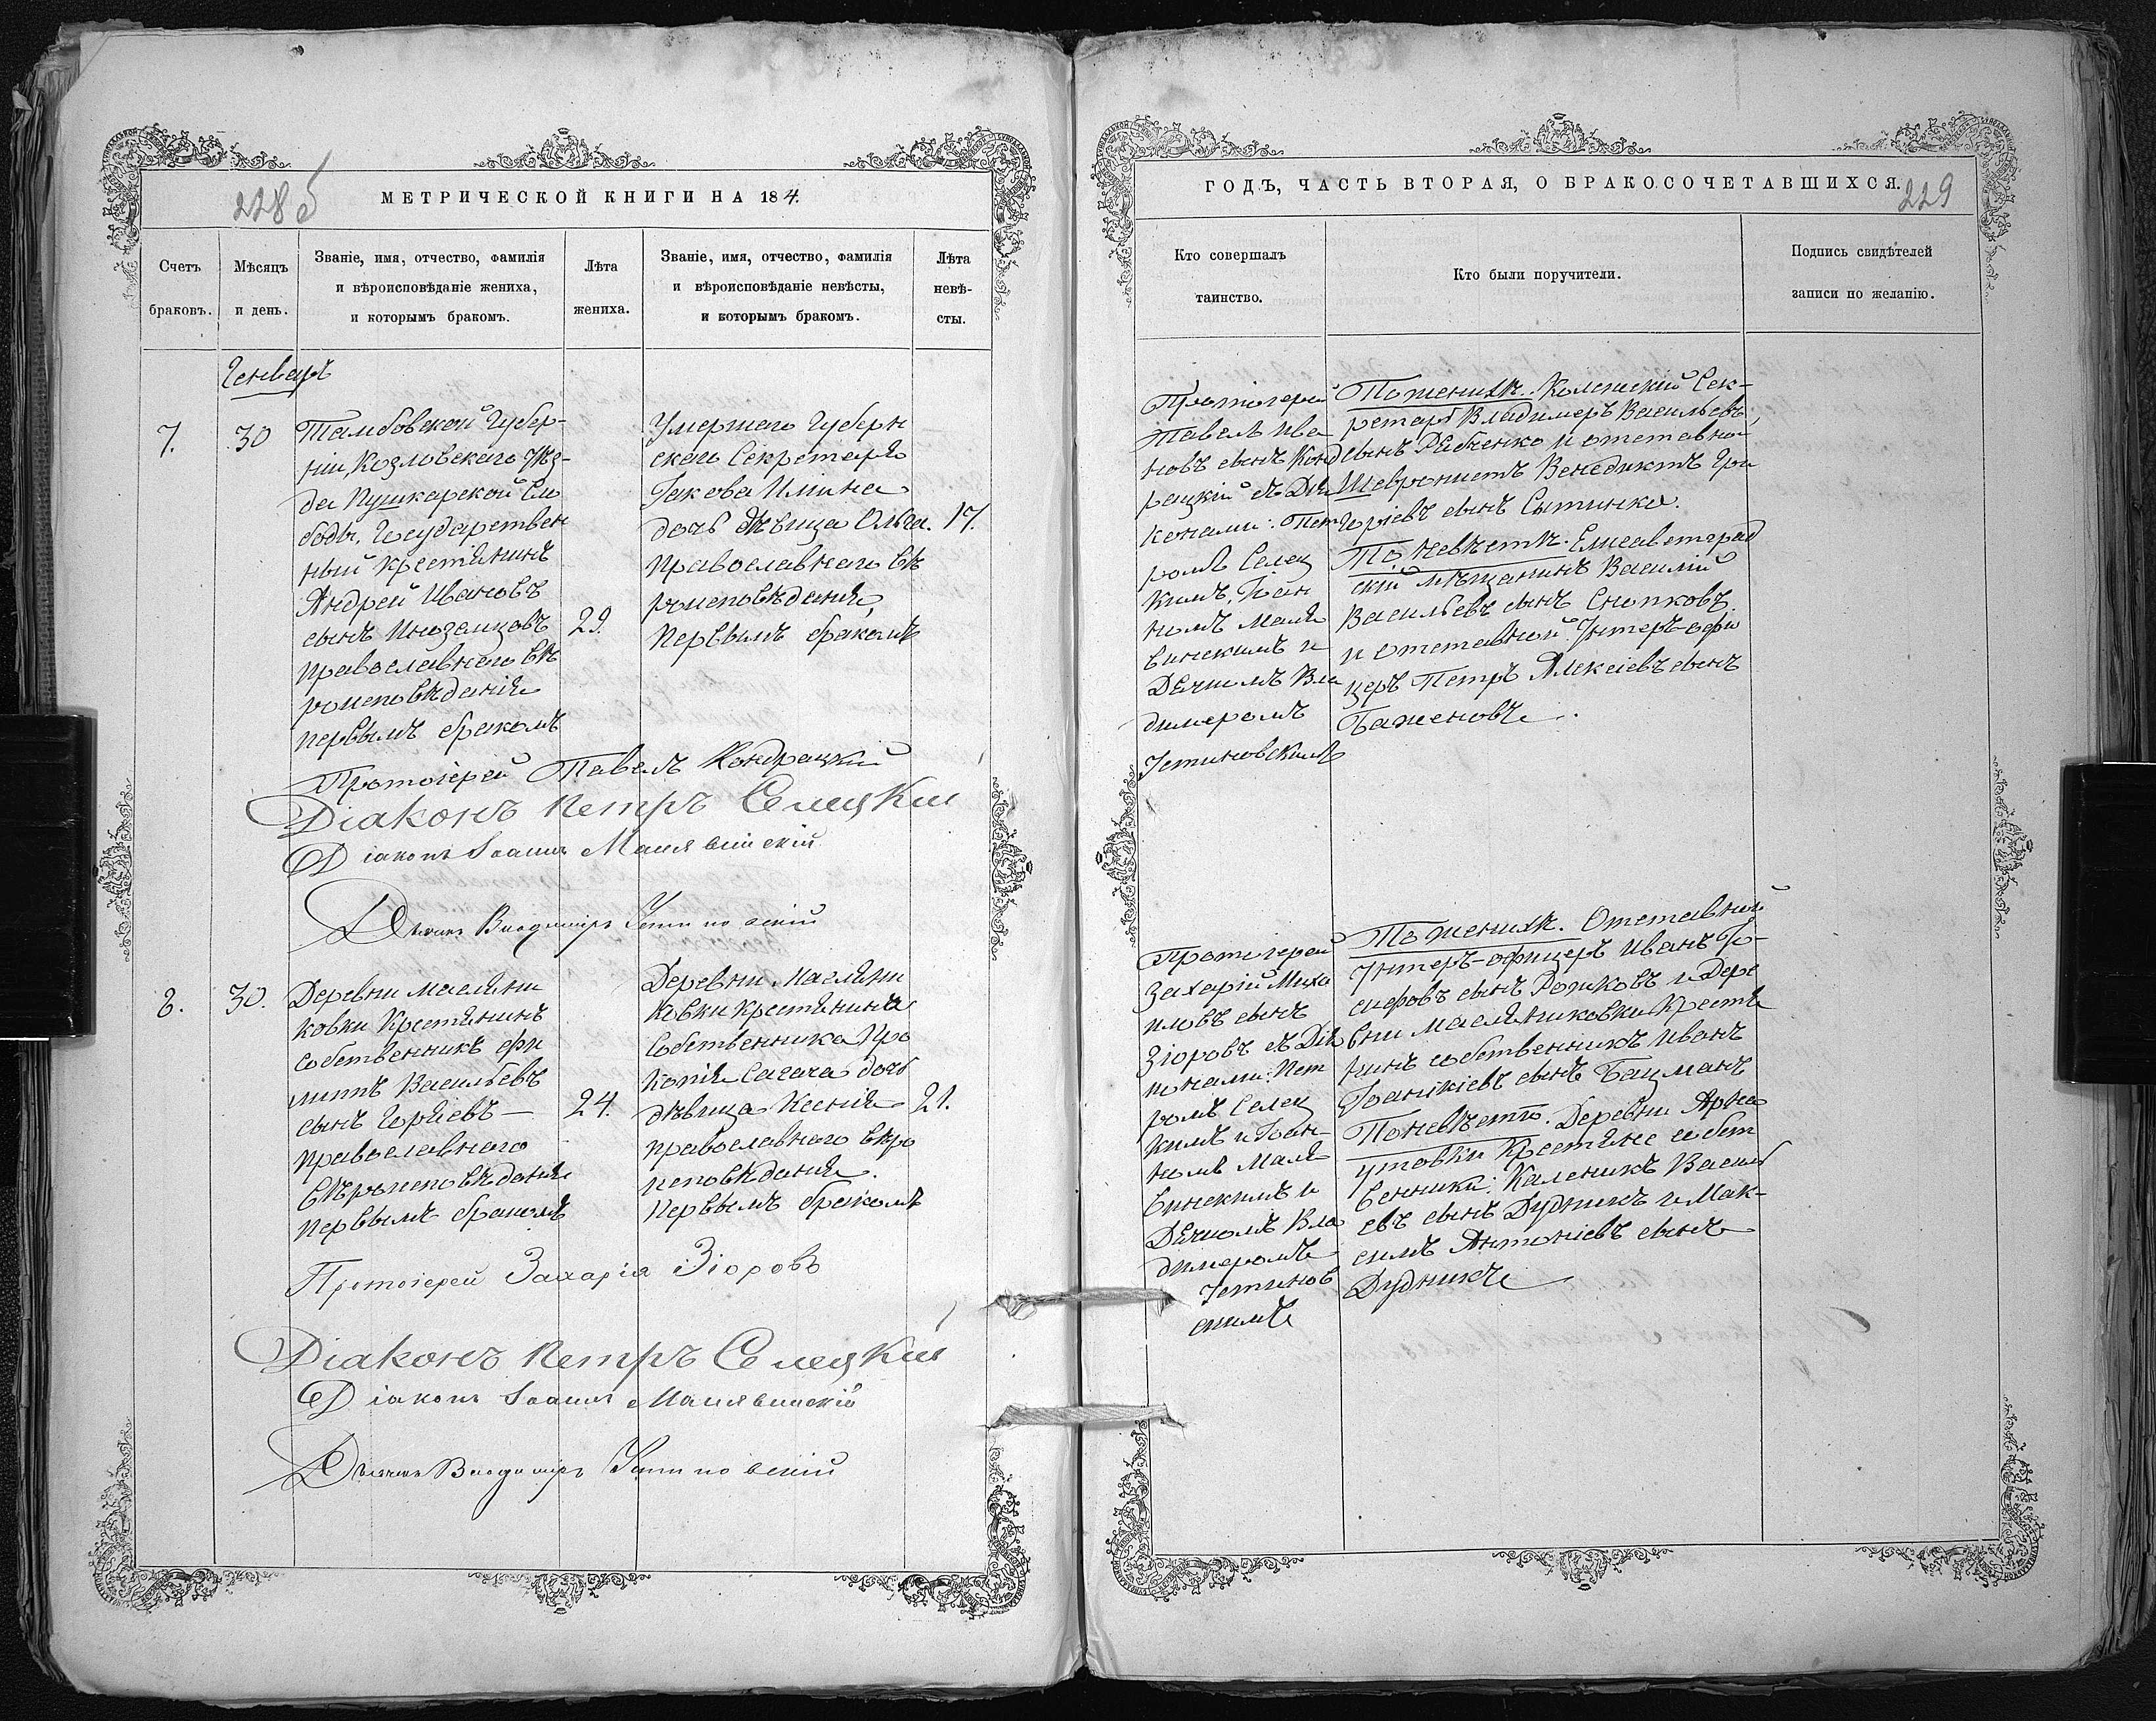 228 б
МЕТРИЧЕСКОЙ КНИГИ НА 184.
Счетъ
браковъ.
Мѣсяцъ
и день.
Званіе, имя, отчество, фамилія
и вѣроисповѣданіе жениха,
и которымъ бракомъ.
Лѣта
жениха.
Званіе, имя, отчество, фамилія
и вѣроисповѣданіе невѣсты,
и которымъ бракомъ.
Лѣта
невѣ-
сты.
Генварь
7.
30
Тамбовской Губер-
ніи, Козловскаго Уѣз-
да Пушкарской Сло
боды, Государствен
ный крестянинъ
Андрей Ивановъ
сынъ Иноземцовъ
православнаго вѣ
роисповѣданія
первымъ бракомъ
29.
Умершаго Губерн
скаго Секретаря
Іакова Ильина
дочь дѣвица Ольга.
православнаго вѣ
роисповѣданія,
первымъ бракомъ
17.
Протоіерей Павелъ Кондрацкій
Діаконъ Петръ Селецкій
Діаконъ Іоаннъ Малявинскій
Дьячокъ Владиміръ Устиновскій
8.
30.
Деревни Масляни
ковки Крестянинъ
собственникъ Фи
липъ Васильевъ
сынъ Гергіевъ —
православнаго
вѣроисповѣданія
первымъ бракомъ
24.
Деревни Масляни
ковки крестянина
Собственника Про
копія Сагача дочь
дѣвица Ксенія
православнаго вѣро
исповѣданія.
первымъ бракомъ
21.
Протоіерей Захарія Зіоровъ
Діаконъ Петръ Селецкій
Діаконъ Іоаннъ Малявинскій
Дьячокъ Владиміръ Устиновскій
ГОДЪ, ЧАСТЬ ВТОРАЯ, О БРАКОСОЧЕТАВШИХСЯ.
229
Кто совершалъ
таинство.
Кто были поручители.
Подпись свидѣтелей
записи по желанію.
Протоіерей
Павелъ Ива
новъ сынъ Конд
рацкій съ Діа
конами: Пет
ромъ Селец
кимъ, Іоан
номъ Маля
винскимъ и
Дячкомъ Вла
димеромъ
Устиновскимъ
По женихѣ. Колежскій Сек-
ретарь Владимеръ Васильевъ
сынъ Рябченко и отставной
Шевронистъ Венедиктъ Гри
горіевъ сынъ Сытинка.
По невѣстѣ. Елисаветград
скій мѣщанинъ Василій
Васильевъ сынъ Снопковъ
и отставной Унтеръ-офи
церъ Петръ Алексіевъ сынъ
Баженовъ.
Протоіерей
Захарій Миха
иловъ сынъ
Зіоровъ съ Діа
конами: Пет
ромъ Селец
кимъ и Іоан-
номъ Маля
винскимъ и
Дячкомъ Вла
димеромъ
Устинов
скимъ
По женихѣ. Отставный
Унтеръ-офицеръ Иванъ Іо-
сифовъ сынъ Рожковъ и Дере
вни Масляниковки Крестя
нинъ собственникъ Иванъ
Іоанікіевъ сынъ Бацманъ
По невѣстѣ. Деревни Арна
утовки Крестяне собст
венники: Каленикъ Василь
евъ сынъ Дудникъ и Мак-
симъ Антоніевъ сынъ
Дудникъ